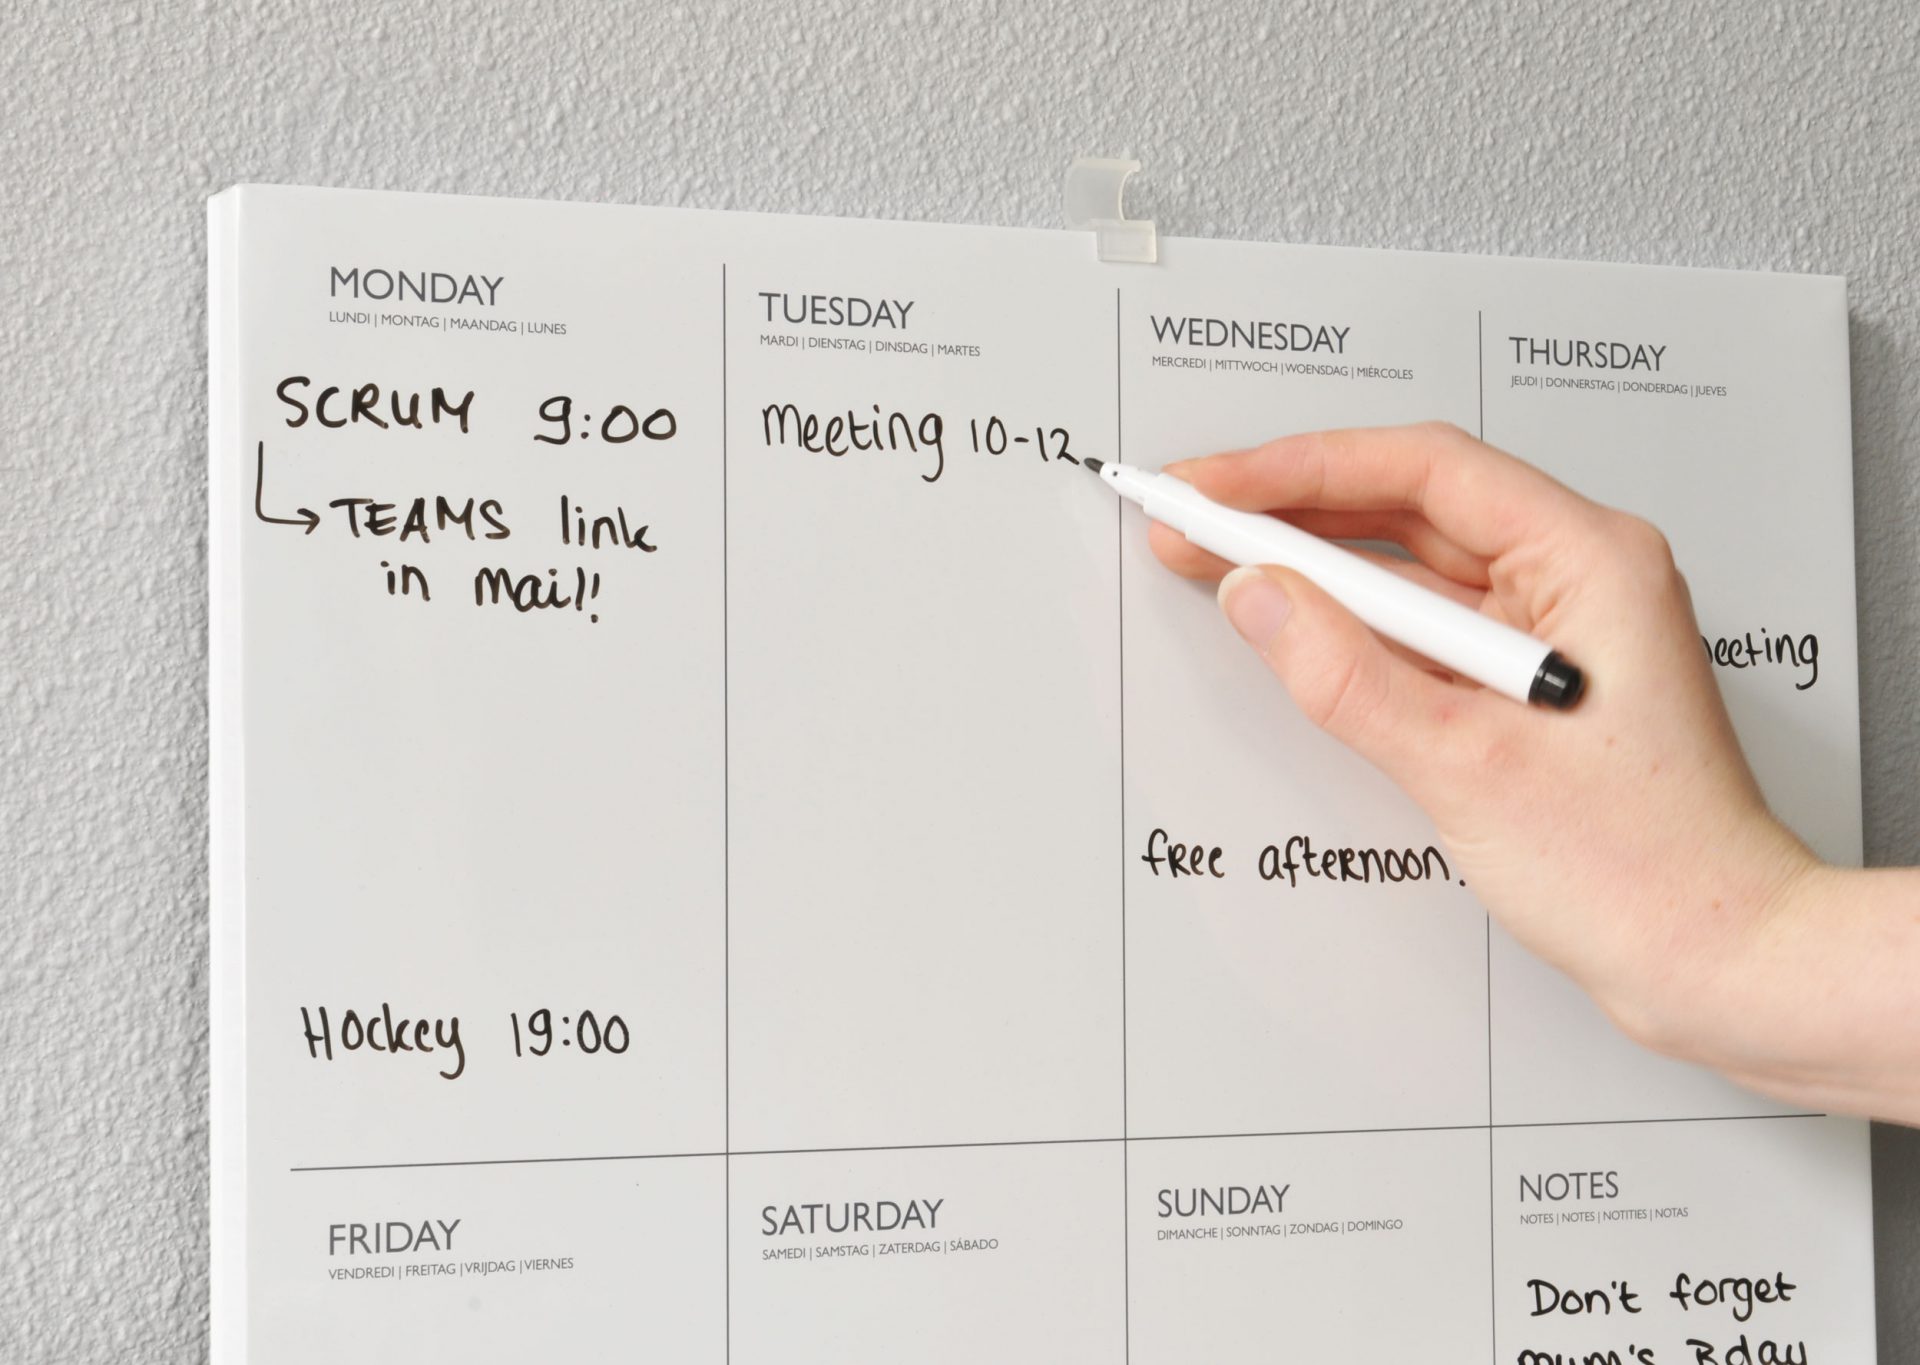 MONDAY
LUNDI | MONTAG | MAANDAG | LUNES
SCRUM 9:00
TEAMS link
in mail!
Hockey 19:00
TUESDAY
MARDI | DIENSTAG | DINSDAG | MARTES
Meeting 10-12
WEDNESDAY
MERCREDI | MITTWOCH | WOENSDAG | MIÉRCOLES
free afternoon.
THURSDAY
JEUDI | DONNERSTAG | DONDERDAG | JUEVES
FRIDAY
VENDREDI | FREITAG | VRIJDAG | VIERNES
SATURDAY
SAMEDI | SAMSTAG | ZATERDAG | SÁBADO
SUNDAY
DIMANCHE | SONNTAG | ZONDAG | DOMINGO
NOTES
NOTES | NOTES | NOTITIES | NOTAS
Don't forget
mum's Bday